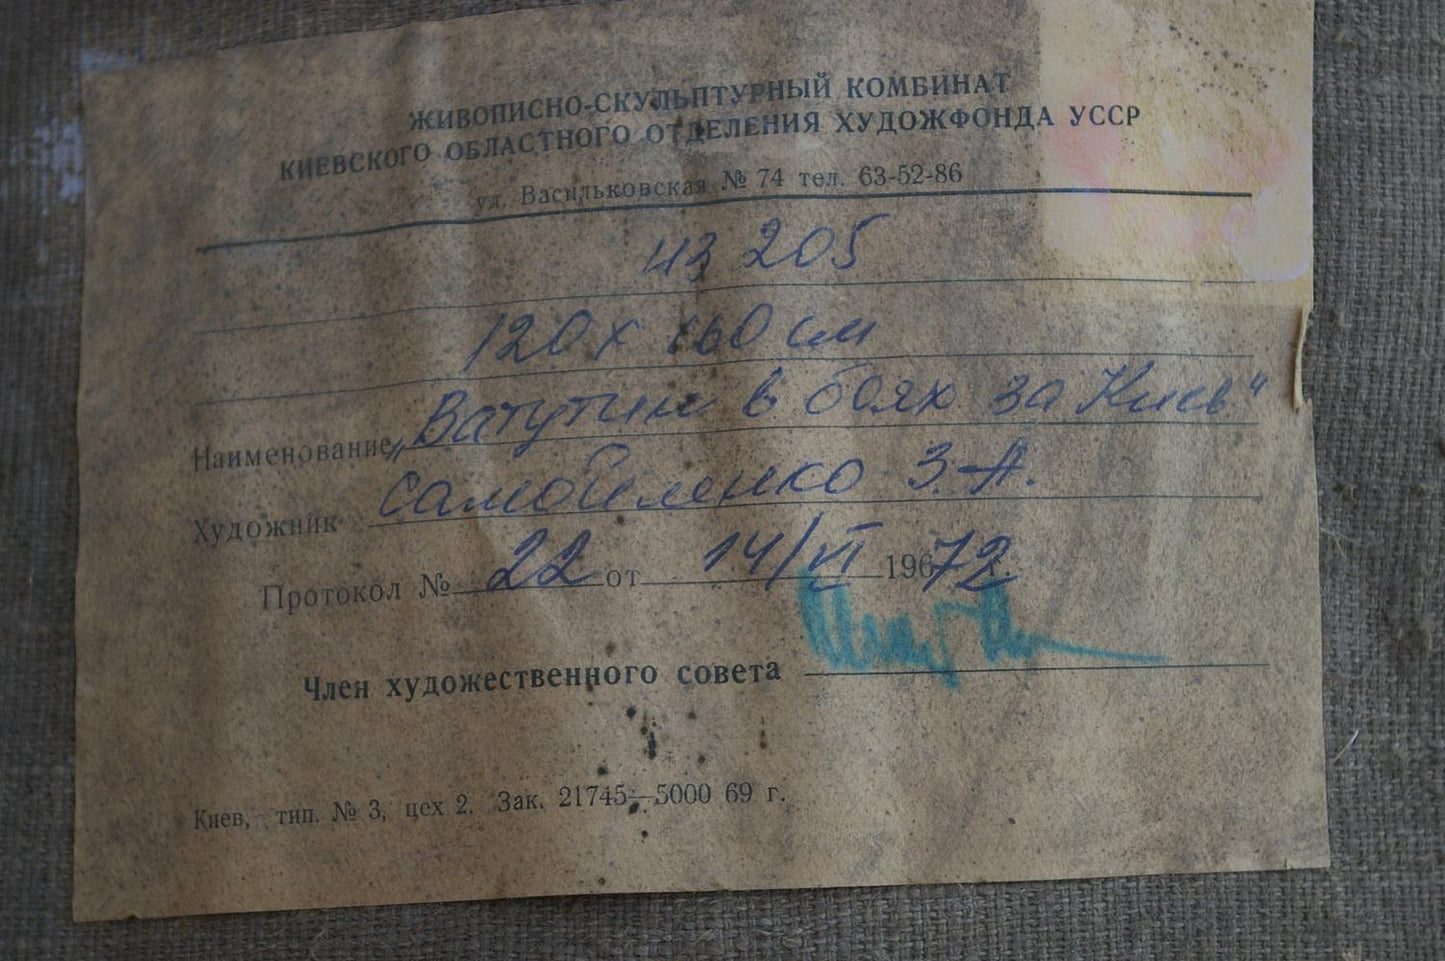 ЖИВОПИСНО-СКУЛЬПТУРНЫЙ КОМБИНАТ
КИЕВСКОГО ОБЛАСТНОГО ОТДЕЛЕНИЯ ХУДОЖФОНДА УССР
ул. Васильковская № 74 тел. 63-52-86
205
120 х 160 см
Наименование „Ватутин в боях за Киев"
Художник Самойленко З. А.
Протокол № 22 от 14/VI 1972.
Член художественного совета
Киев, тип. № 3, цех 2. Зак. 21745—5000 69 г.